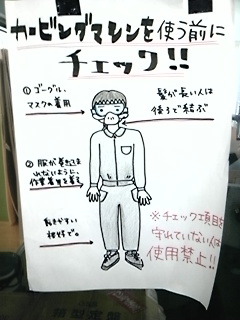 カービングマシンを使う前に
チェック!!
①ゴーグル、
マスクの着用
髪が長い人は
後ろで結ぶ
②服が巻きこま
れないように、
作業着を着る
動きやすい
格好で。
※チェック項目を
守れていない人は
使用禁止!!